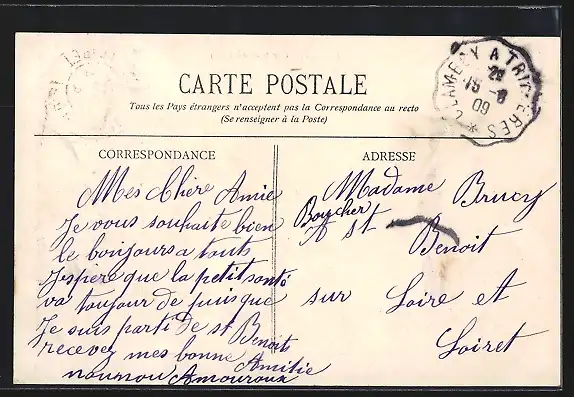 CLAMECY A TRIGUÈRES
29
15-8
09
CARTE POSTALE
Tous les Pays étrangers n'acceptent pas la Correspondance au recto
(Se renseigner à la Poste)
CORRESPONDANCE
Mes Chère Amie
Je vous souhaite bien
le bonjours a touts
J'espère que la petit santé
va toujour de puis que
Je suis parti de st Benoits
recevez mes bonne Amitie
nounou Amouroux
ADRESSE
Madame Brucy
Boucher
A St Benoit
sur Loire et
Loiret